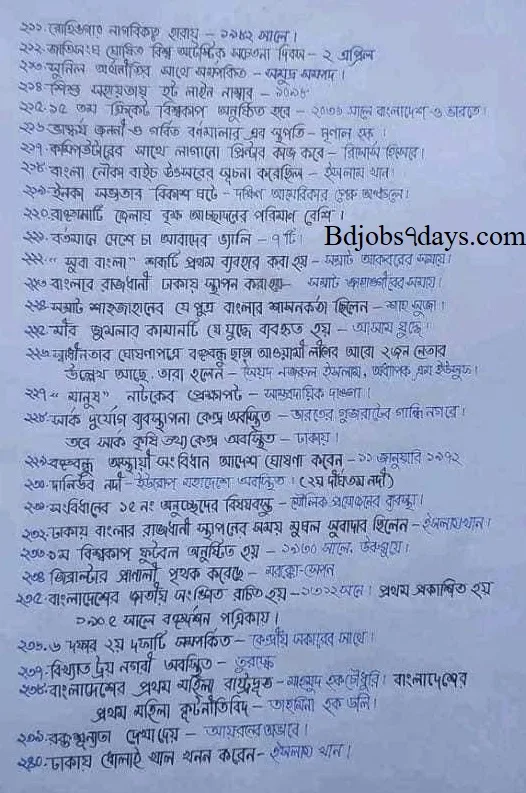 ২১১. রোহিঙ্গারা নাগরিকত্ব হারায় - ১৯৮২ সালে।
২১২. জাতিসংঘ ঘোষিত বিশ্ব অটেস্টিক সচেতনা দিবস - ২ এপ্রিল
২১৩. সুনিল অর্থনীতির সাথে সম্পর্কিত - সমুদ্র সম্পদ।
২১৪. শিশু সহায়তায় হট লাইন নাম্বার - ১০৯৮
২১৫. ১৫ তম ক্রিকেট বিশ্বকাপ অনুষ্ঠিত হবে - ২০৩১ সালে বাংলাদেশ ও ভারতে।
২১৬. ভাস্কর্য জননী ও গর্বিত বর্ণমালার এর স্থপতি - মৃণাল হক।
২১৭. কম্পিউটারের সাথে লাগানো প্রিন্টার কাজ করে - রিসোর্স হিসেবে।
২১৮. বাংলা নৌকা বাইচ উৎসবের সূচনা করেছিল - ইসলাম খান।
২১৯. ইনকা সভ্যতার বিকাশ ঘটে - দক্ষিণ আমেরিকার পেরু অঞ্চলে।
২২০. রাঙ্গামাটি জেলায় বৃক্ষ আচ্ছাদনের পরিমাণ বেশি।
২২১. বর্তমানে দেশে চা আবাদের ভ্যালি - ৭ টি।
Bdjobs9days.com
২২২. "সুবা বাংলা" শব্দটি প্রথম ব্যবহার করা হয় - সম্রাট আকবরের সময়ে।
২২৩. বাংলার রাজধানী ঢাকায় স্থাপন করা হয় - সম্রাট জাহাঙ্গীরের সময়।
২২৪. সম্রাট শাহজাহানের যে পুত্র বাংলার শাসনকর্তা ছিলেন - শাহ সুজা।
২২৫. মীর জুমলার কামানটি যে যুদ্ধে ব্যবহৃত হয় - আসাম যুদ্ধে।
২২৬. স্বাধীনতার ঘোষণাপত্রে বঙ্গবন্ধু ছাড়া আওয়ামী লীগের আরো ২জন নেতার
উল্লেখ আছে, তারা হলেন - সৈয়দ নজরুল ইসলাম, অধ্যাপক এম ইউসুফ।
২২৭. "মানুষ" নাটকের প্রেক্ষাপট - সাম্প্রদায়িক দাঙ্গা।
২২৮. সার্ক দুর্যোগ ব্যবস্থাপনা কেন্দ্র অবস্থিত - ভারতের গুজরাটের গান্ধিনগরে।
তবে সার্ক কৃষি তথ্য কেন্দ্র অবস্থিত - ঢাকায়।
২২৯. বঙ্গবন্ধু অস্থায়ী সংবিধান আদেশ ঘোষণা করেন - ১১ জানুয়ারি ১৯৭২
২৩০. দানিউব নদী - ইউরোপ মহাদেশে অবস্থিত। (২য় দীর্ঘতম নদী)
২৩১. সংবিধানের ১৫ নং অনুচ্ছেদের বিষয়বস্তু - মৌলিক প্রয়োজনের ব্যবস্থা।
২৩২. ঢাকায় বাংলার রাজধানী স্থাপনের সময় মুঘল সুবাদার ছিলেন - ইসলাম খান।
২৩৩. ১ম বিশ্বকাপ ফুটবল অনুষ্ঠিত হয় - ১৯৩০ সালে, উরুগুয়ে।
২৩৪. জিব্রাল্টার প্রণালী পৃথক করেছে - মরক্কো-স্পেন
২৩৫. বাংলাদেশের জাতীয় সংগীত রচিত হয় - ১৩১২ সনে। প্রথম প্রকাশিত হয়
১৯০৫ সালে বঙ্গদর্শন পত্রিকায়।
২৩৬. ৬ দফার ২য় দফাটি সম্পর্কিত - কেন্দ্রীয় সরকারের সাথে।
২৩৭. বিখ্যাত ট্রয় নগরী অবস্থিত - তুরস্কে
২৩৮. বাংলাদেশের প্রথম মহিলা রাষ্ট্রদূত - মাহমুদ হক চৌধুরি। বাংলাদেশের
প্রথম মহিলা কূটনীতিবিদ - তাহমিনা হক ডলি।
২৩৯. রক্তশূন্যতা দেখা দেয় - আয়রনের অভাবে।
২৪০. ঢাকায় ধোলাই খাল খনন করেন - ইসলাম খান।